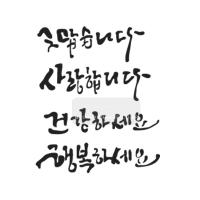 고맙습니다
사랑합니다
건강하세요
행복하세요